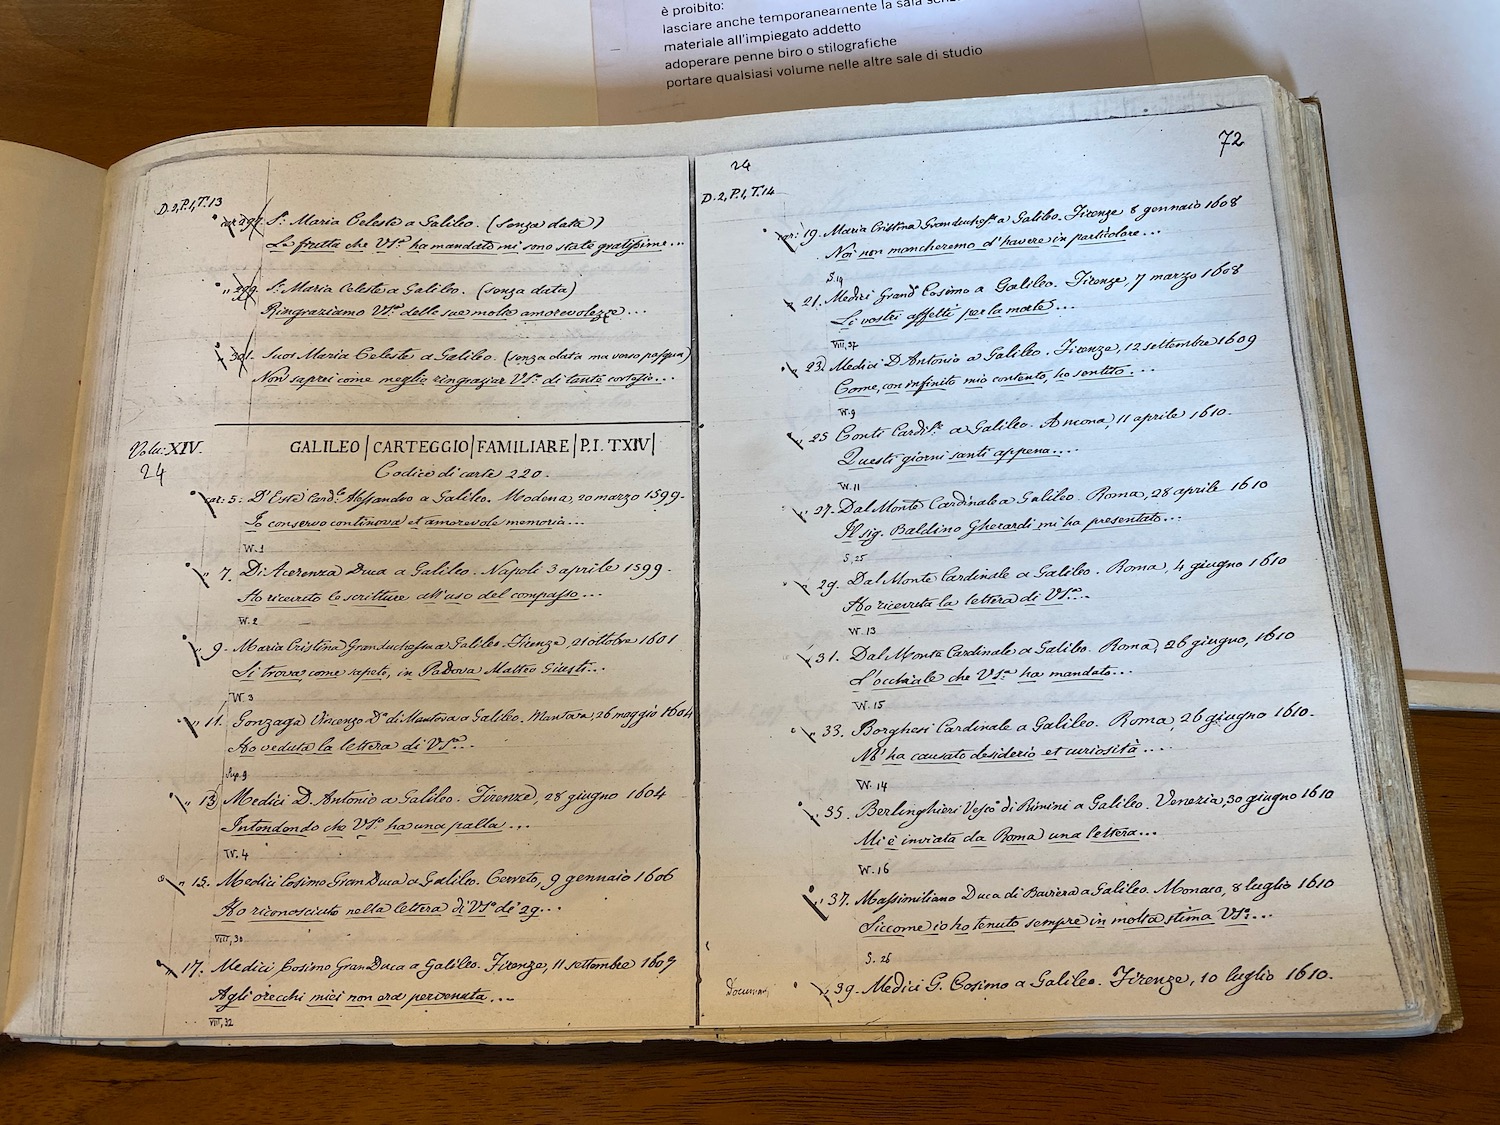 è proibito:
lasciare anche temporaneamente la sala
materiale all'impiegato addetto
adoperare penne biro o stilografiche
portare qualsiasi volume nelle altre sale di studio
D.2, P.I, T.13
car 297. Sr. Maria Celeste a Galileo. (senza data)
Le frutta che VSra. ha mandato mi sono state gratissime...
" 299. Sr. Maria Celeste a Galileo. (senza data)
Ringraziamo VSra. delle sue molte amorevolezze...
" 301. Suor Maria Celeste a Galileo. (senza data ma verso pasqua)
Non saprei come meglio ringraziar VSra. di tante cortesie...
Volu: XIV.
24
GALILEO | CARTEGGIO | FAMILIARE | P.I. T.XIV |
Codice di carte 220.
car: 5. D'Este Cardle. Alessandro a Galileo. Modena, 20 marzo 1599.
Io conservo continova et amorevole memoria...
W. 1
" 7. Di Acerenza Duca a Galileo. Napoli 3 aprile 1599.
Ho ricevuto le scritture all'uso del compasso...
W. 2
" 9. Maria Cristina Granduchessa a Galileo. Firenze, 21 ottobre 1601
Si trova, come sapete, in Padova Matteo Giusti...
W. 3
" 11. Gonzaga Vincenzo Da. di Mantova a Galileo. Mantova, 26 maggio 1604
Ho veduta la lettera di VSra...
Sup. 9
" 13. Medici D. Antonio a Galileo. Firenze, 28 giugno 1604
Intendendo che VSra. ha una palla...
W. 4
" 15. Medici Cosimo Gran Duca a Galileo. Cerreto, 9 gennaio 1606
Ho riconosciuto nella lettera di VSra. de' 29...
VIII, 30
" 17. Medici Cosimo Gran Duca a Galileo. Firenze, 11 settembre 1607
Agli orecchi miei non era pervenuta...
VIII, 32
24
72
D.2, P.I, T.14
car: 19. Maria Cristina Granduchesa. a Galileo. Firenze 8 gennaio 1608
Noi non mancheremo d'havere in particolare...
S. 19
" 21. Medici Grand. Cosimo a Galileo. Firenze, 7 marzo 1608
Li vostri affetti per la morte...
VIII, 37
" 23. Medici D. Antonio a Galileo. Firenze, 12 settembre 1609
Come, con infinito mio contento, ho sentito...
W. 9
" 25 Conti Cardile. a Galileo. Ancona, 11 aprile 1610.
Questi giorni santi appena...
W. 11
" 27. Dal Monte Cardinale a Galileo. Roma, 28 aprile 1610
Il sig. Baldino Gherardi mi ha presentato...
S. 25
" 29. Dal Monte Cardinale a Galileo. Roma, 4 giugno 1610
Ho ricevuta la lettera di VSra...
W. 13
" 31. Dal Monte Cardinale a Galileo. Roma, 26 giugno, 1610
L'occhiale che VSra. ha mandato...
W. 15
" 33. Borghesi Cardinale a Galileo. Roma, 26 giugno 1610.
M'ha causato desiderio et curiosità...
W. 14
" 35. Berlinghieri Vesco. di Rimini a Galileo. Venezia, 30 giugno 1610
Mi è inviata da Roma una lettera...
W. 16
" 37. Massimiliano Duca di Baviera a Galileo. Monaco, 8 luglio 1610
Siccome io ho tenuto sempre in molta stima VSra...
S. 26
Docum.
" 39. Medici G. Cosimo a Galileo. Firenze, 10 luglio 1610.